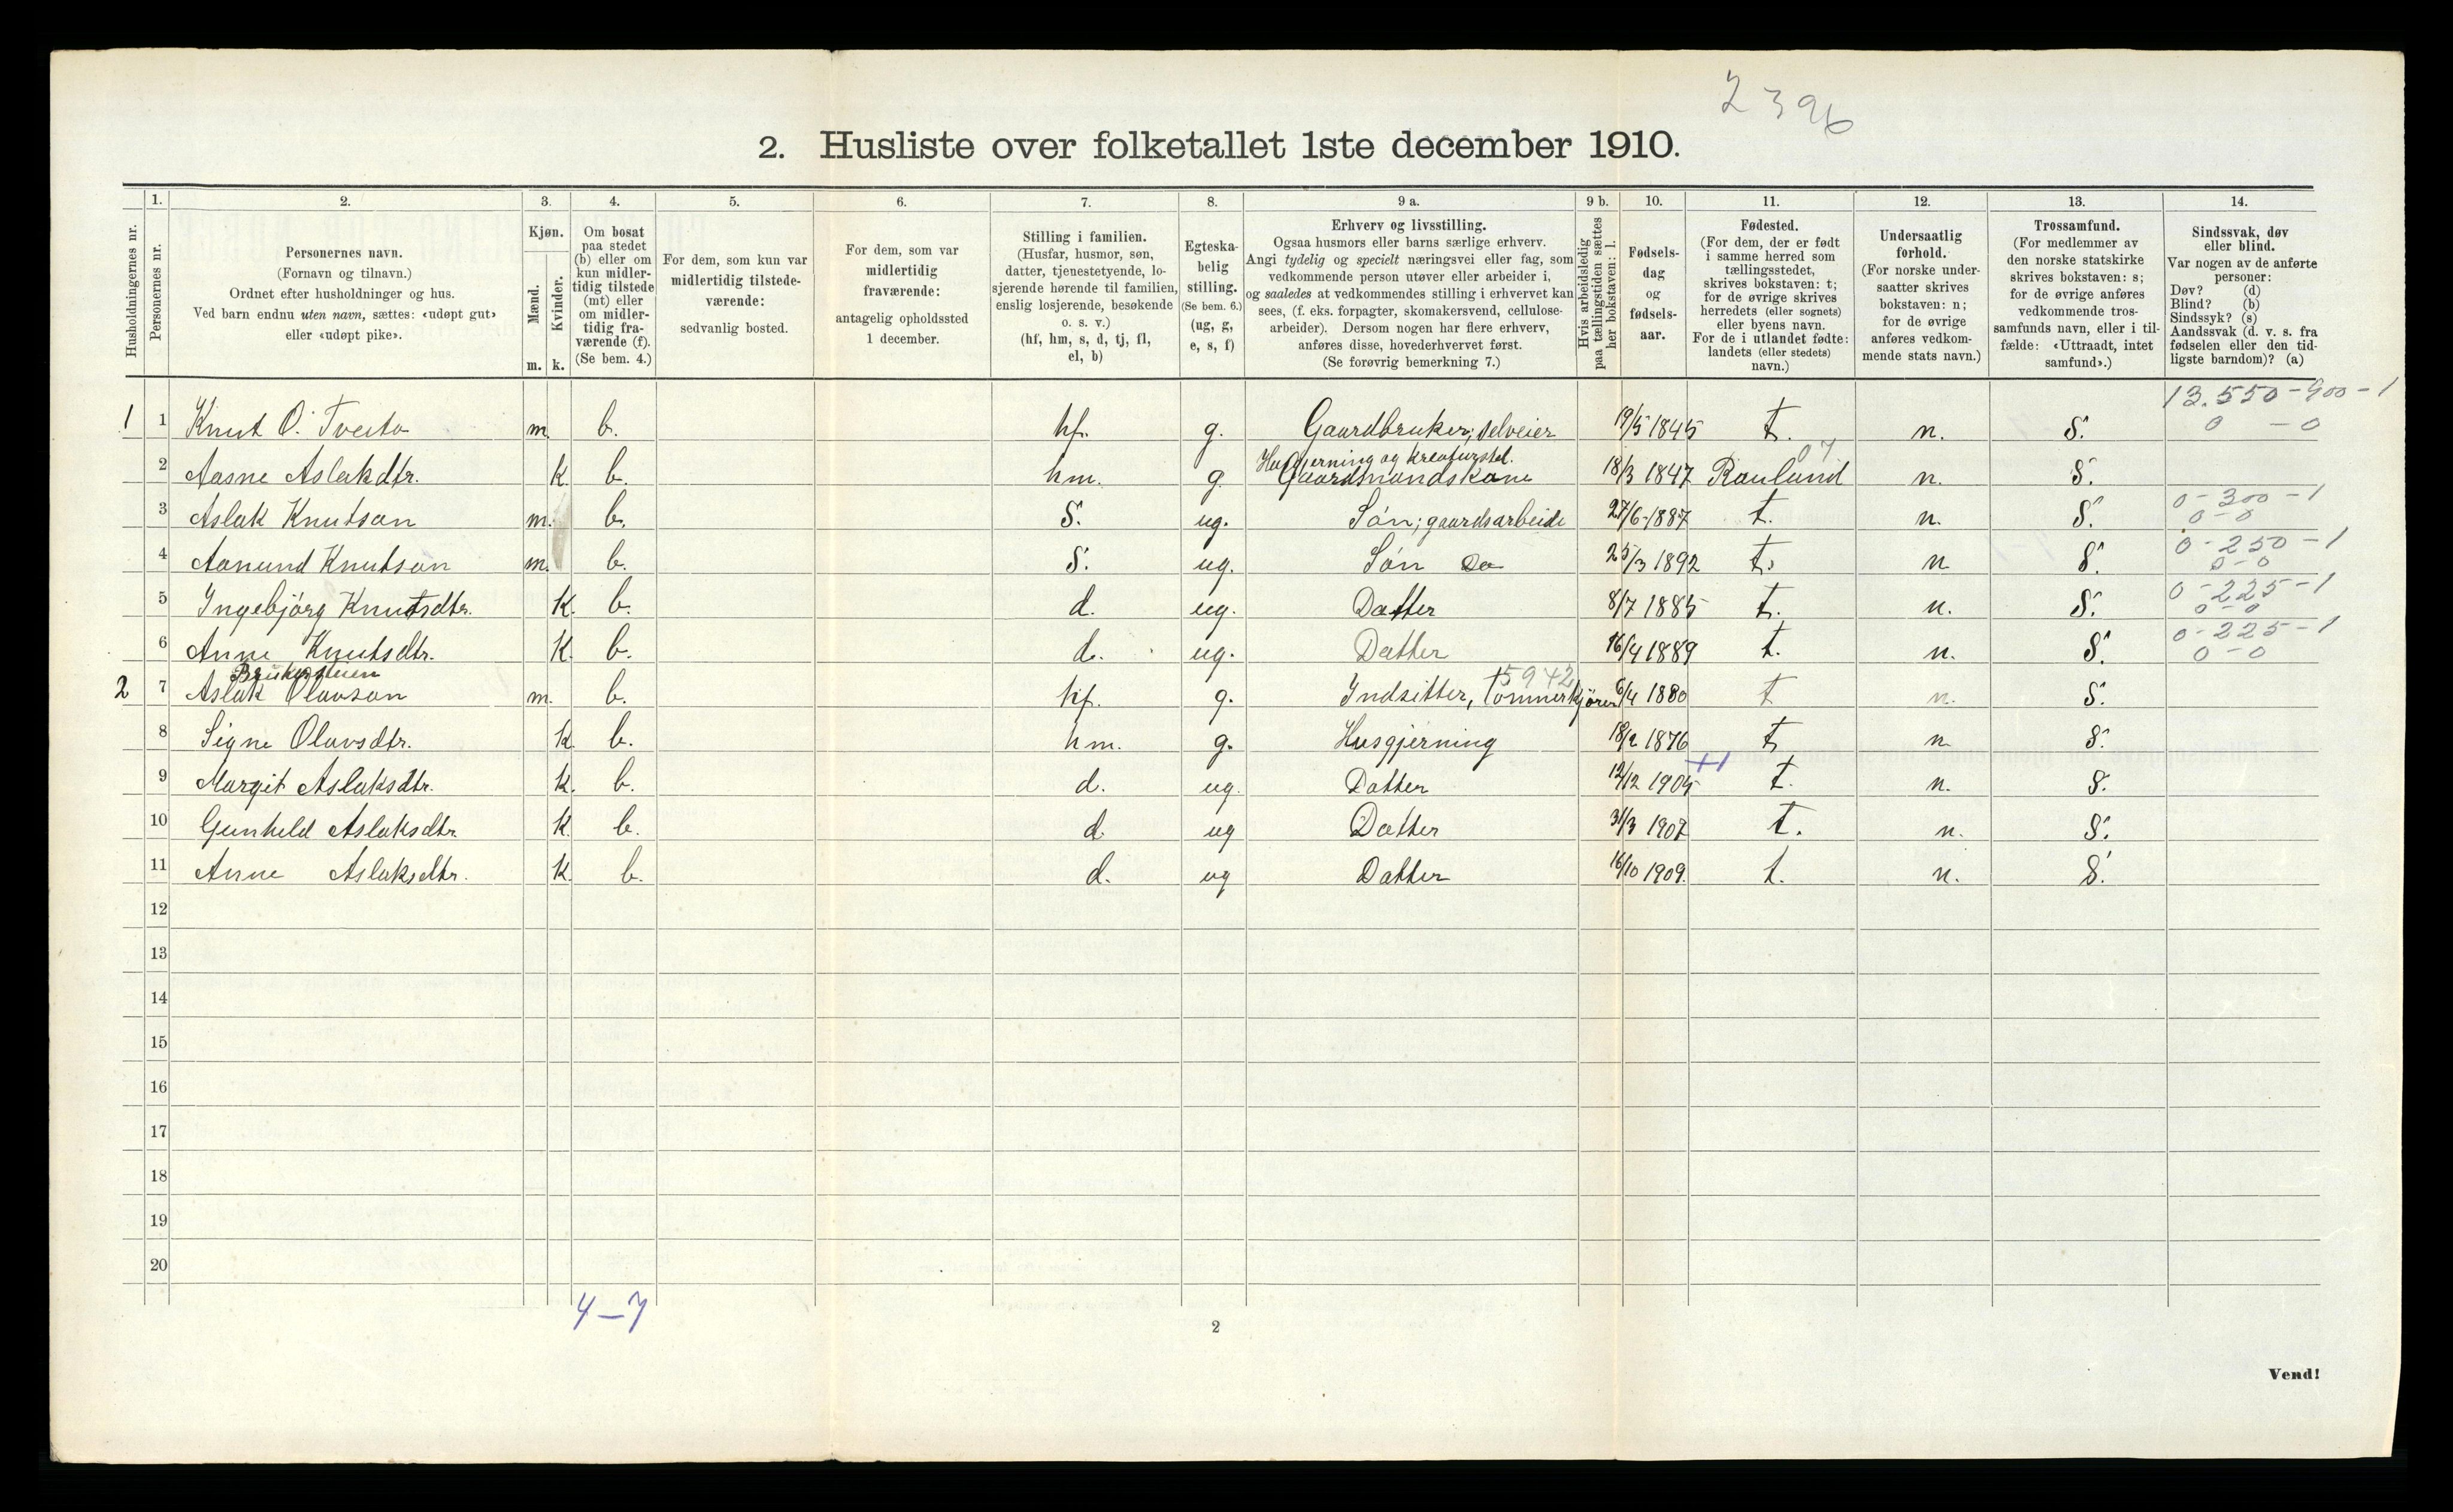 2396
2. Husliste over folketallet 1ste december 1910.
Husholdningernes nr.
1.
Personernes nr.
2.
Personernes navn.
(Fornavn og tilnavn.)
Ordnet efter husholdninger og hus.
Ved barn endnu uten navn, sættes: «udøpt gut»
eller «udøpt pike».
3.
Kjøn.
Mænd.
m.
Kvinder.
k.
4.
Om bosat
paa stedet
(b) eller om
kun midler-
tidig tilstede
(mt) eller
om midler-
tidig fra-
værende (f).
(Se bem. 4.)
5.
For dem, som kun var
midlertidig tilstede-
værende:
sedvanlig bosted.
6.
For dem, som var
midlertidig
fraværende:
antagelig opholdssted
1 december.
7.
Stilling i familien.
(Husfar, husmor, søn,
datter, tjenestetyende, lo-
sjerende hørende til familien,
enslig losjerende, besøkende
o. s. v.)
(hf, hm, s, d, tj, fl,
el, b)
8.
Egteska-
belig
stilling.
(Se bem. 6.)
(ug, g,
e, s, f)
9 a.
Erhverv og livsstilling.
Ogsaa husmors eller barns særlige erhverv.
Angi tydelig og specielt næringsvei eller fag, som
vedkommende person utøver eller arbeider i,
og saaledes at vedkommendes stilling i erhvervet kan
sees, (f. eks. forpagter, skomakersvend, cellulose-
arbeider). Dersom nogen har flere erhverv,
anføres disse, hovederhvervet først.
(Se forøvrig bemerkning 7.)
9 b.
Hvis arbeidsledig
paa tællingstiden sættes
her bokstaven: l.
10.
Fødsels-
dag
og
fødsels-
aar.
11.
Fødested.
(For dem, der er født
i samme herred som
tællingsstedet,
skrives bokstaven: t;
for de øvrige skrives
herredets (eller sognets)
eller byens navn.
For de i utlandet fødte:
landets (eller stedets)
navn.)
12.
Undersaatlig
forhold.
(For norske under-
saatter skrives
bokstaven: n;
for de øvrige
anføres vedkom-
mende stats navn.)
13.
Trossamfund.
(For medlemmer av
den norske statskirke
skrives bokstaven: s;
for de øvrige anføres
vedkommende tros-
samfunds navn, eller i til-
fælde: «Uttraadt, intet
samfund».)
14.
Sindssvak, døv
eller blind.
Var nogen av de anførte
personer:
Døv? (d)
Blind? (b)
Sindssyk? (s)
Aandssvak (d. v. s. fra
fødselen eller den tid-
ligste barndom)? (a)
13.550-900-1
1 1 Knut O. Tveito m. b. hf. g. Gaardbruker; selveier 19/5 1845 t. n. S. 0 - 0
Husgjerning og kreaturstel. 07
2 Aasne Aslakdtr. k. b. hm. g. Gaardmandskone 18/3 1847 Rauland n. S.
0-300-1
3 Aslak Knutson m. b. S. ug. Søn; gaardsarbeide 27/6-1887 t. n. S. 0-0
0-250-1
4 Aanund Knutson m. b. S. ug. Søn Do 25/3 1892 t. n S. 0-0
0-225-1
5 Ingebjørg Knutsdtr. K. b. d. ug. Datter 8/7 1885 t. n. S. 0-0
0-225-1
6 Anne Knutsdtr. K. b. d. ug. Datter 16/4 1889 t. n. S. 0-0
5942
2 7 Aslak Olavson m. b. hf. g. Indsitter, tømmerkjører 6/4 1880 t n. S.
8 Signe Olavsdtr. k. b. hm. g. Husgjerning 18/2 1876 t n. S.
+1
9 Margit Aslaksdtr. k. b. d. ug. Datter 12/12 1905 t. n. S.
10 Gunhild Aslaksdtr. K. b. d. ug Datter 31/3 1907 t. n. S.
11 Anne Aslaksdtr. K. b. d. ug Datter 16/10 1909. t. n. S.
12
13
14
15
16
17
18
19
20
4-7
2
Vend!